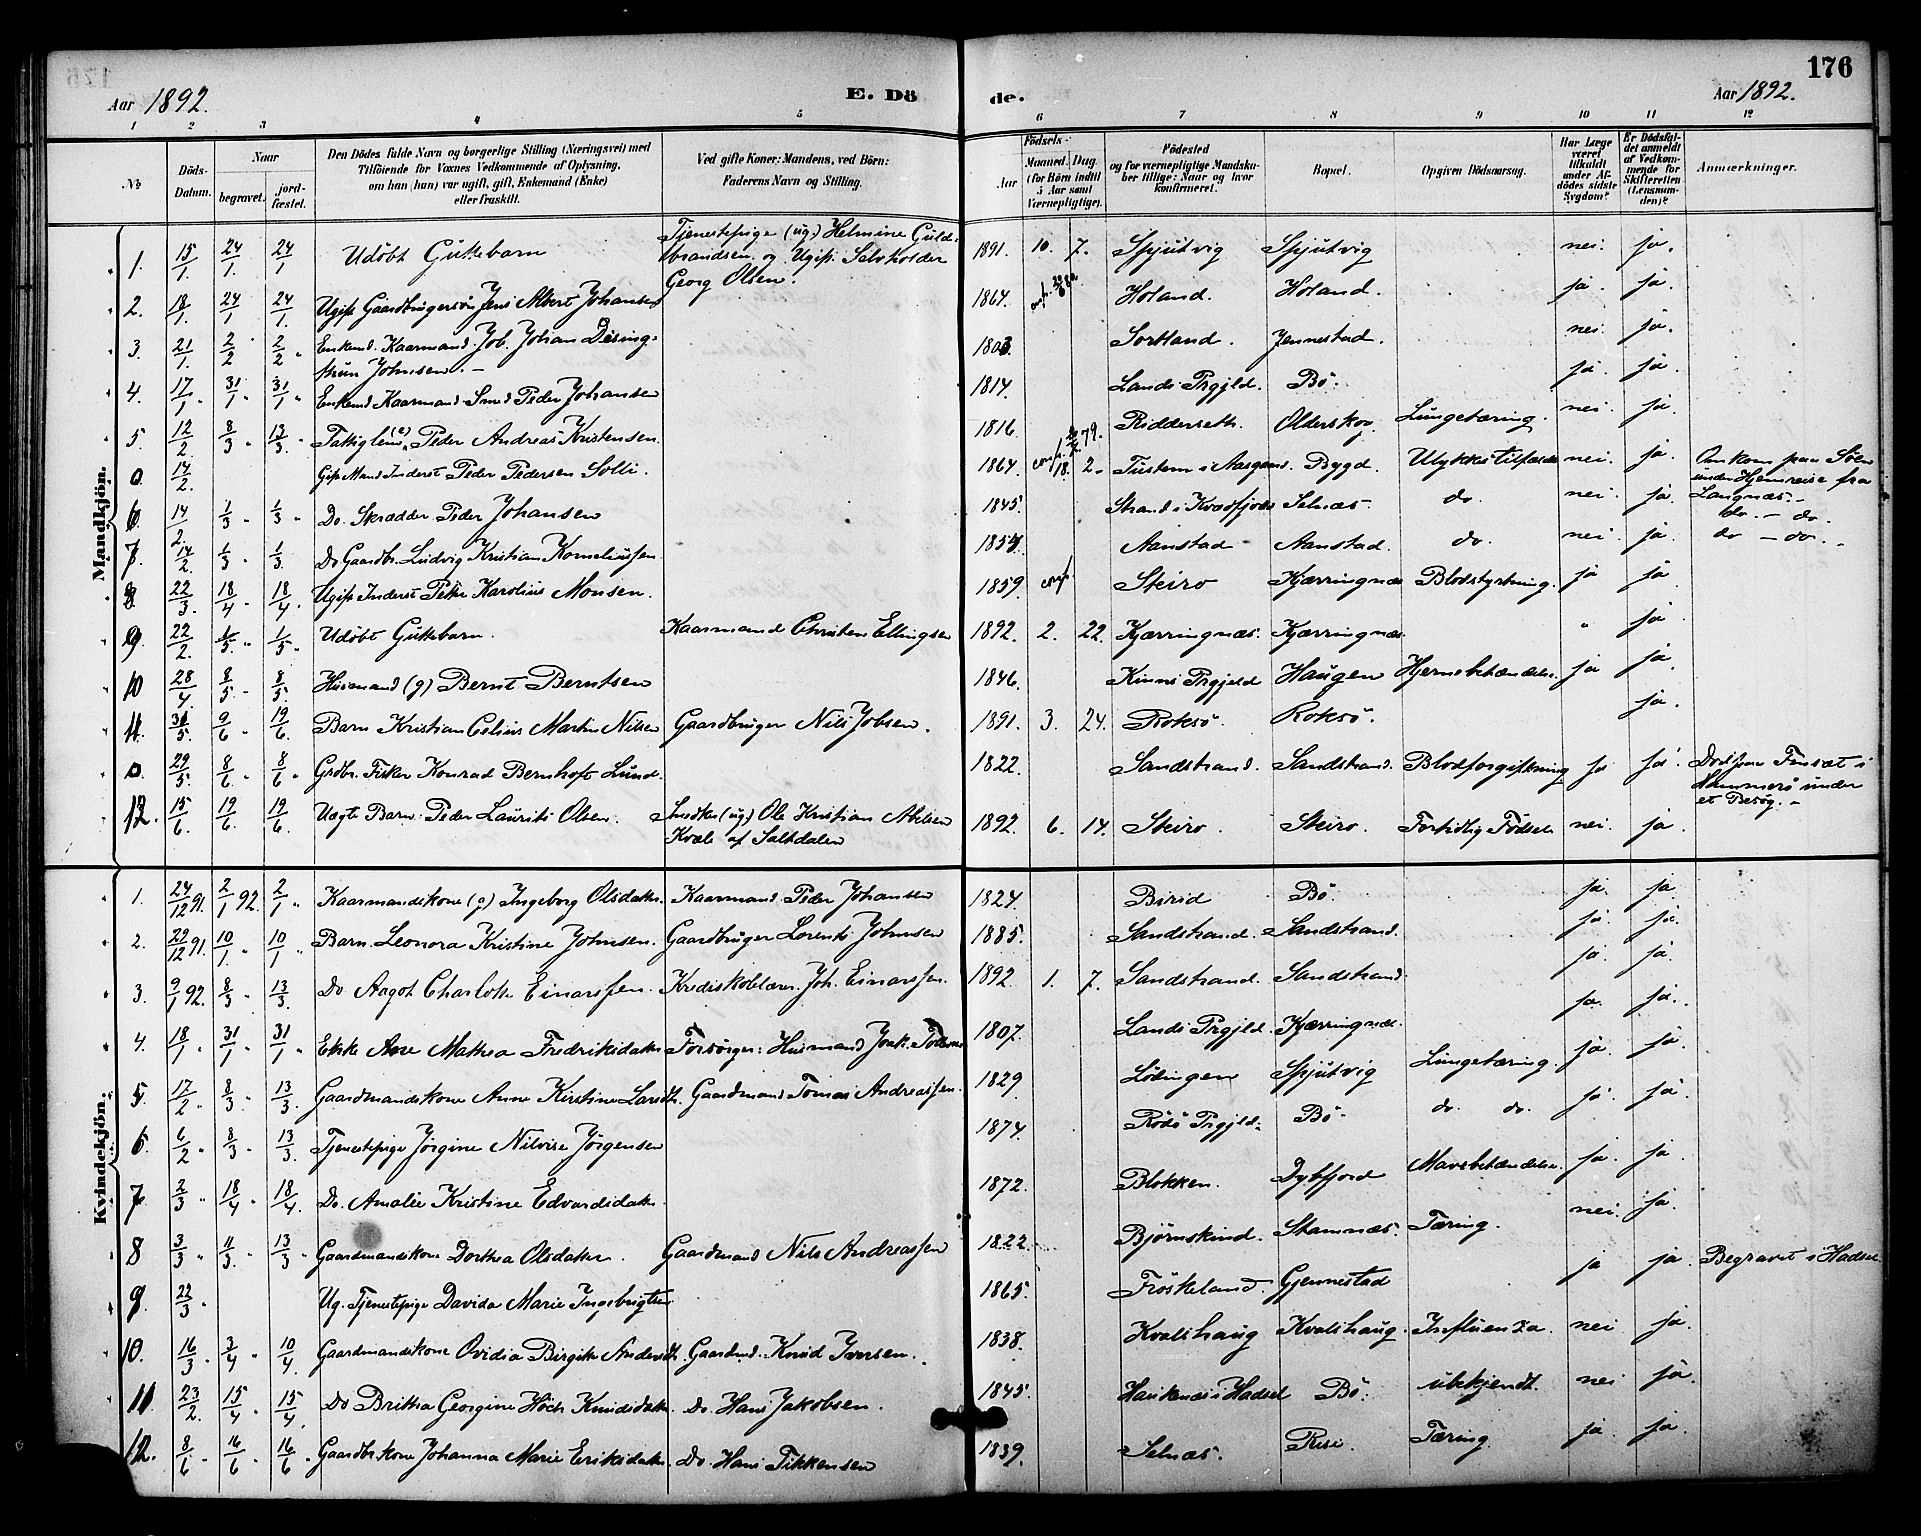 176
Aar 1892. E. Döde. Aar 1892.
1 2 3 4 5 6 7 8 9 10 11 12
No
Döds-Datum.
Naar
begravet.
jord-fæstet.
Den Dödes fulde Navn og borgerlige Stilling (Næringsvei) med
Tilföiende for Voxnes Vedkommende af Oplysning,
om han (hun) var ugift, gift, Enkemand (Enke)
eller fraskilt.
Ved gifte Koner: Mandens, ved Börn:
Faderens Navn og Stilling.
Födsels-
Aar
Maaned. Dag.
(for Börn indtil
5 Aar samt
Værnepligtige).
Födested
og for værnepligtige Mandsku-
ber tillige: Naar og hvor
konfirmeret.
Bopæl.
Opgiven Dödsaarsag.
Har Læge
været
tilkaldt
under Af-
dödes sidste
Sygdom?
Er Dödsfal-
det anmeldt
af Vedkom-
mende for
Skifteretten
(Lensman-
den)?
Anmærkninger.
Mandkjön.
1. 15/1. 24/1. 24/1 Udöbt Guttebarn Tjenestepige (ug.) Helmine Guld-
brandsen og Ugift Sølvholder
Georg Olsen. 1891. 10. 7. Spjutvig Spjutvig nei. ja.
2. 18/1. 24/1 24/1. Ugift Gaardbrugersøn Jens Albert Johansen 1864. Holand. Holand. ja. ja.
3. 21/1. 2/2 2/2 Enkemd. Kaarmand Job. Johan
Johnsen. 1803. Sortland. Jennestad. nei. ja.
4. 17/1. 31/1 31/1 Enkemd Kaarmand Smed Peder Johansen 1814. Lands Prgjld. Bö. ja. ja.
5. 12/2. 8/3 13/3 Fattiglem (e) Peder Andreas Kristensen. 1816 Ridderseth. Olderskog Lungetæring. nei. ja.
0. 14/2. Gift Mand Inderst Peder Pedersen Solli. 1864. 18. 2. Bygd. Ulykkestilfælde nei. ja. Omkom paa Søen
under Hjemreise fra
Langnæs.
6 14/2. 1/3 1/3 Do. Skrædder Peder Johansen 1845. Strand i Kvædfjord Selnæs. do. nei. ja do. - do.
7. 14/2. 1/3 1/3. Do Gaardbr. Ludvig Kristian Korneliussen. 1857. Aanstad Aanstad. do. nei. ja. do - do.
8 22/3. 18/4 18/4. Ugift Inderst Peter Karolius Monsen. 1859. conf. Steiro Kjærringnæs Blodstyrtning. ja ja
9 22/2. 1/5 1/5 Udöbt Guttebarn. Kaarmand Christen Ellingsen 1892. 2. 22. Kjærringnæs. Kjærringnæs. " ja
10 28/4. 8/5 8/5 Husmand (g) Bernt Berntsen 1846. Kinns Prgjeld Haugen Hjernebetændelse. ja ja.
11. 31/5. 9/6 19/6. Barn Kristian Celius Martin Nilsen Gaardbruger Nils Jobsen. 1891. 3. 24. Roksö. Roksö. ja.
0. 29/5. 8/6 8/6 Grdbr. Fisker Konrad Bernhoft Lund. 1822. Sandstrand. Sandstrand. Blodforgiftning ja ja. Död paa i
Hammerö under
et Besög.
12. 15/6. 19/6. 19/6 Uægte Barn Peder Laurits Olsen. Snedker (ug) Ole Kristian
Kvæle af Saltdalen 1892. 6. 14. Steiro. Steiro. Fortidlig Födsel nei. ja.
Kvindekjön.
1. 24/12 91. 2/1 92. 2/1 Kaarmandskone (g) Ingeborg Olsdatter. Kaarmand Peder Johansen 1824. Birid Bö. ja. ja
2. 29/12 91. 10/1 10/1 Barn Leonora Kristine Johnsen. Gaardbruger Lorents Johnsen 1885. Sandstrand. Sandstrand. ja. ja.
3. 9/1 92. 8/3 13/3. Do Aagot Charlotte Einarssen. Kredsskolelærer Joh. Einarssen. 1892. 1. 7. Sandstrand. Sandstrand ja. ja.
4. 18/1 31/1 31/1 Enke Ane Mathea Fredriksdatter Forsörger: Husmand Joak. 1807. Lands Prgjld. Kjærringnæs. ja. ja.
5. 17/2. 8/3. 13/3. Gaardmandskone Anne Kirstine Larsdt. Gaardmand Tomas Andreassen. 1829 Lödingen Spjutvig Lungetæring. ja. ja.
6. 6/2 8/3 13/3. Tjenestepige Jörgine Nilvise Jörgensen 1874. Rödö Prgjld. Bö. do. do. ja. ja.
7. 2/3 18/4 18/4. Do. Amalie Kristine Edvardsdatter 1872. Blokken. Dybfjord Mavebetændelse. ja. ja.
8 3/3 11/3. 13/3 Gaardmandskone Dorthea Olsdatter. Gaardmand Nils Andreassen 1822. Björnskind. Stamnæs. Tæring. nei. ja.
9. 22/3. Ug. Tjenestepige Davida Marie Ingebrigtsen 1865. Fröskeland. Gjennestad ja ja Begravet i Hadsel.
10. 16/3. 3/4 10/4. Gaardmandskone Ovidia Birgitte Andersdt. Gaardmd. Knud Iversen. 1838. Kvalshaug Kvalshaug. Influenza. nei ja.
11. 23/2. 15/4 15/4. Do Britha Georgine Höch Knudsdatter. Do. Hans Jakobsen. 1845. Haukenæs i Hadsel Bö. ubekjendt. nei ja.
12. 8/6 16/6 16/6 Gaardbr.kone Johanna Marie Eriksdatter. Do Hans Tikkensen 1839. Selnæs. Rise. Tæring. ja. ja.